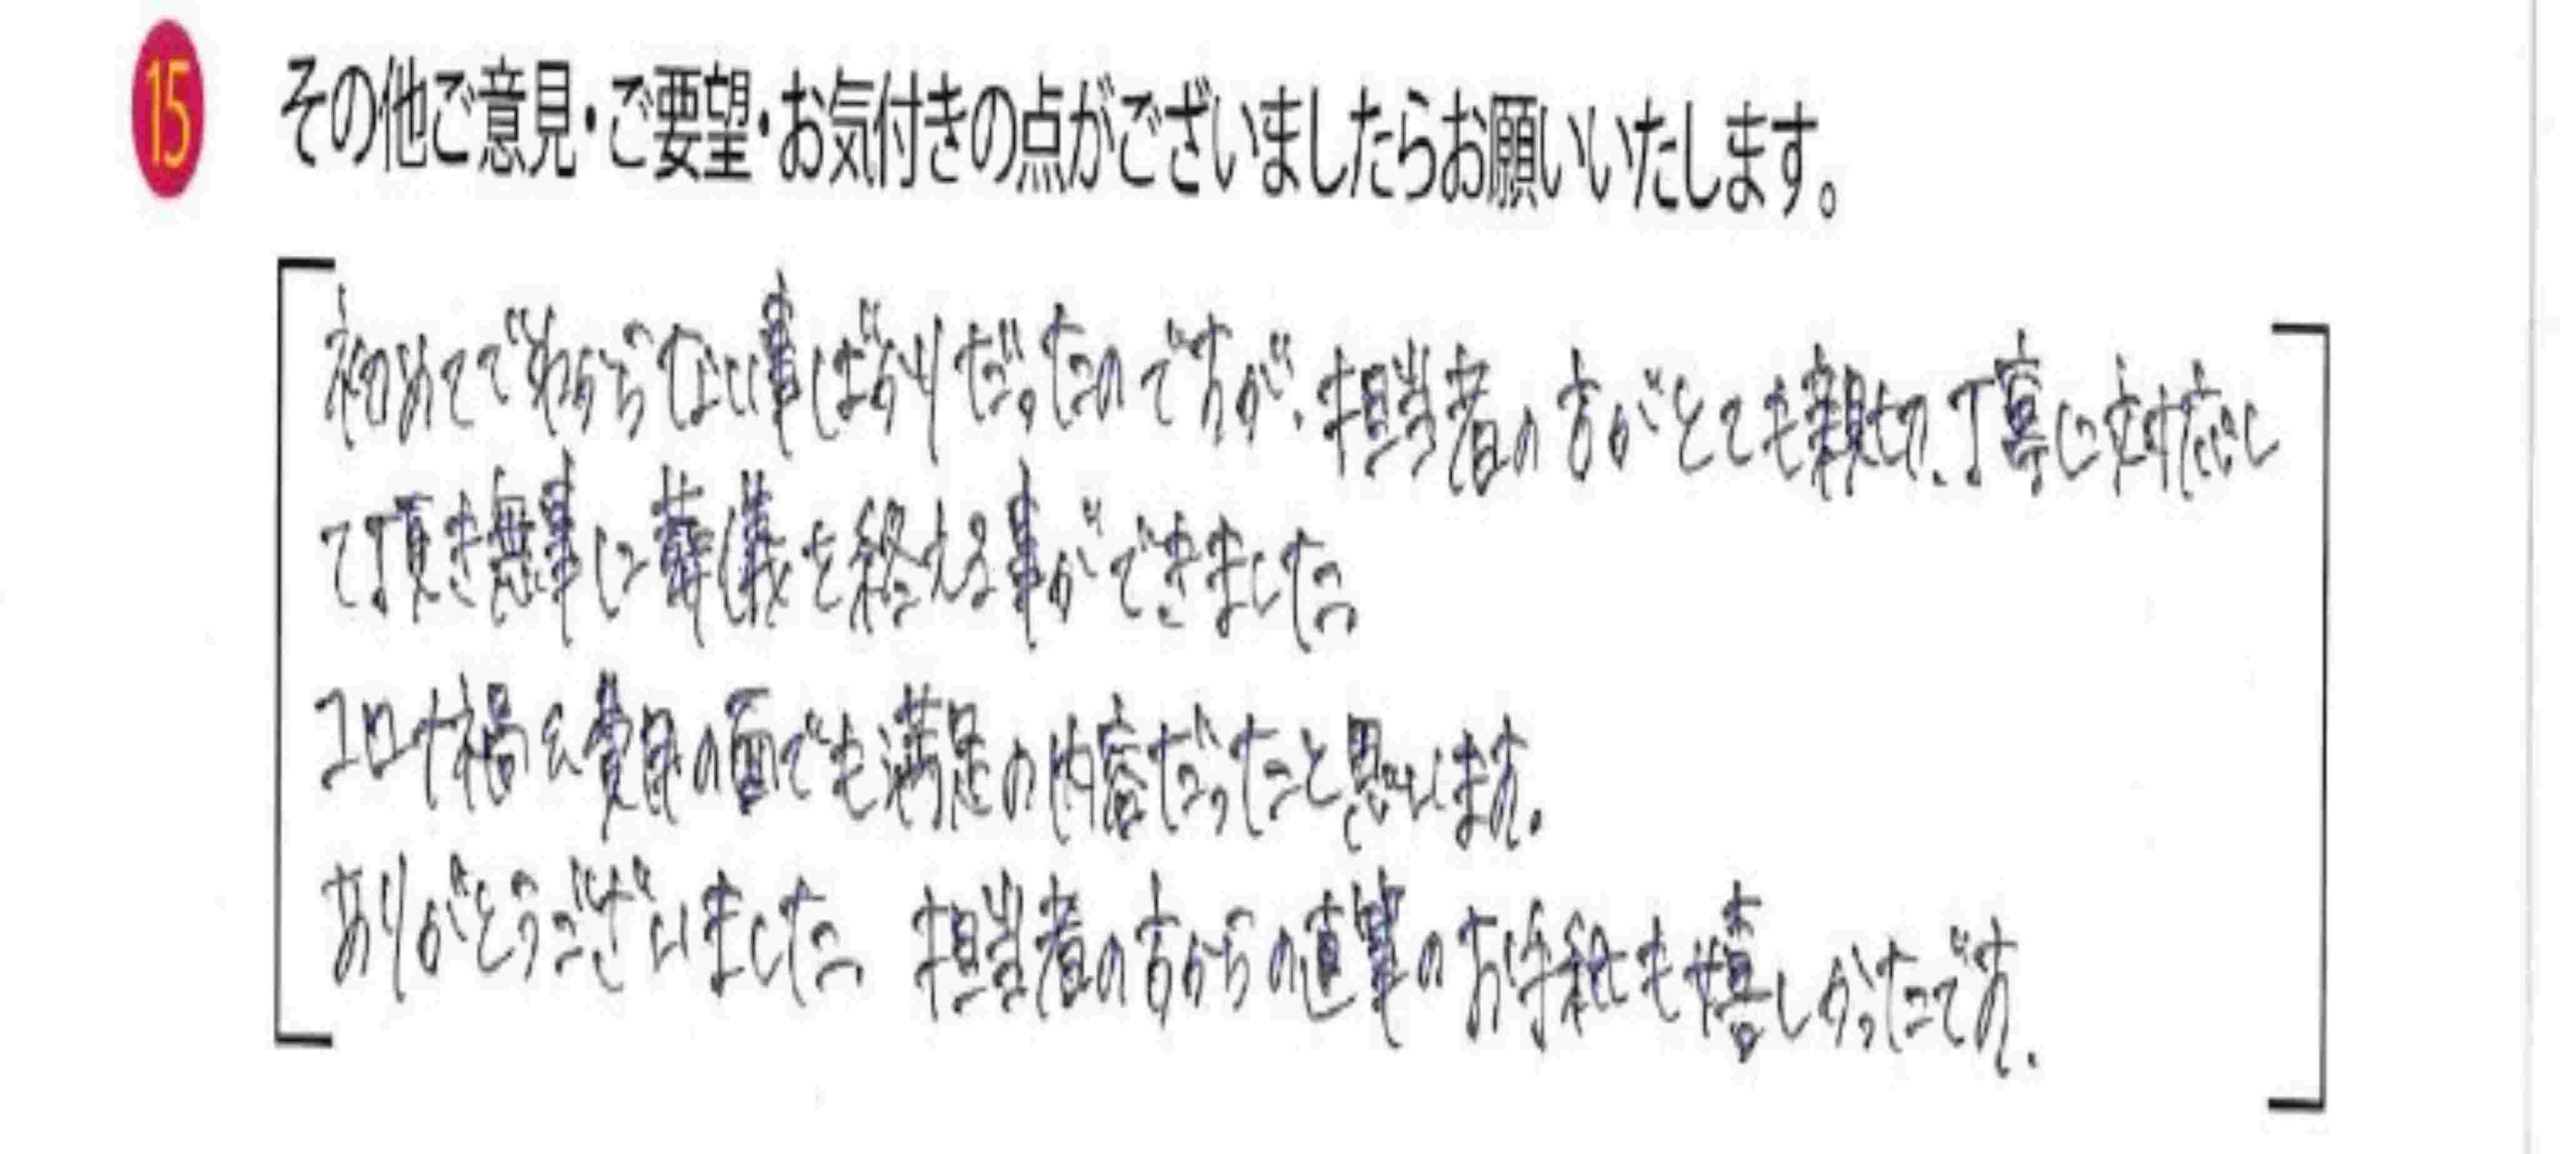 15 その他ご意見・ご要望・お気付きの点がございましたらお願いいたします。
初めてでわからない事ばかりだったのですが、担当者の方がとても親切、丁寧に対応し
て頂き無事に葬儀を終える事ができました。
コロナ禍 費用の面でも満足の内容だったと思います。
ありがとうございました。 担当者の方からの直筆のお手紙も嬉しかったです。